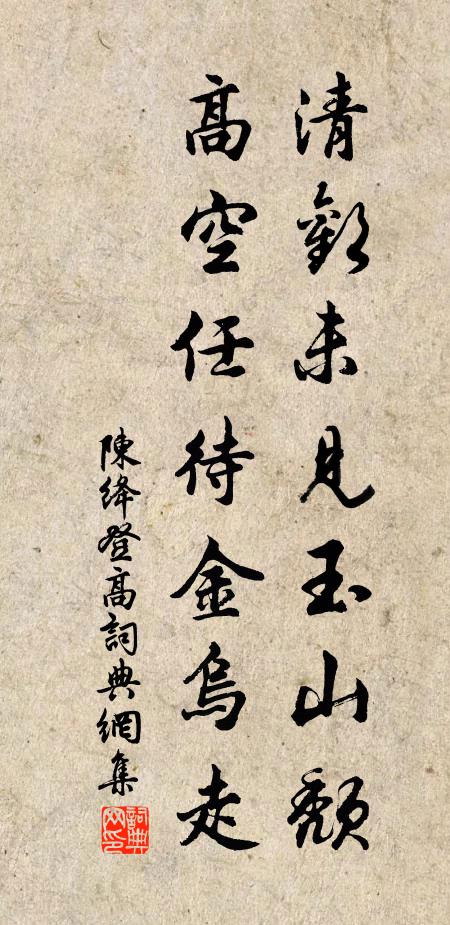 清歡未見玉山頹
高空任待金烏走
陳絳登高詞典網集
詞典網印